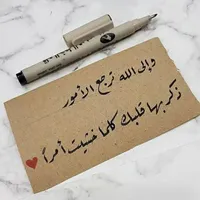 وإلى الله ترجع الأمور
ذكر بها قلبك كلما خشيت أمراً